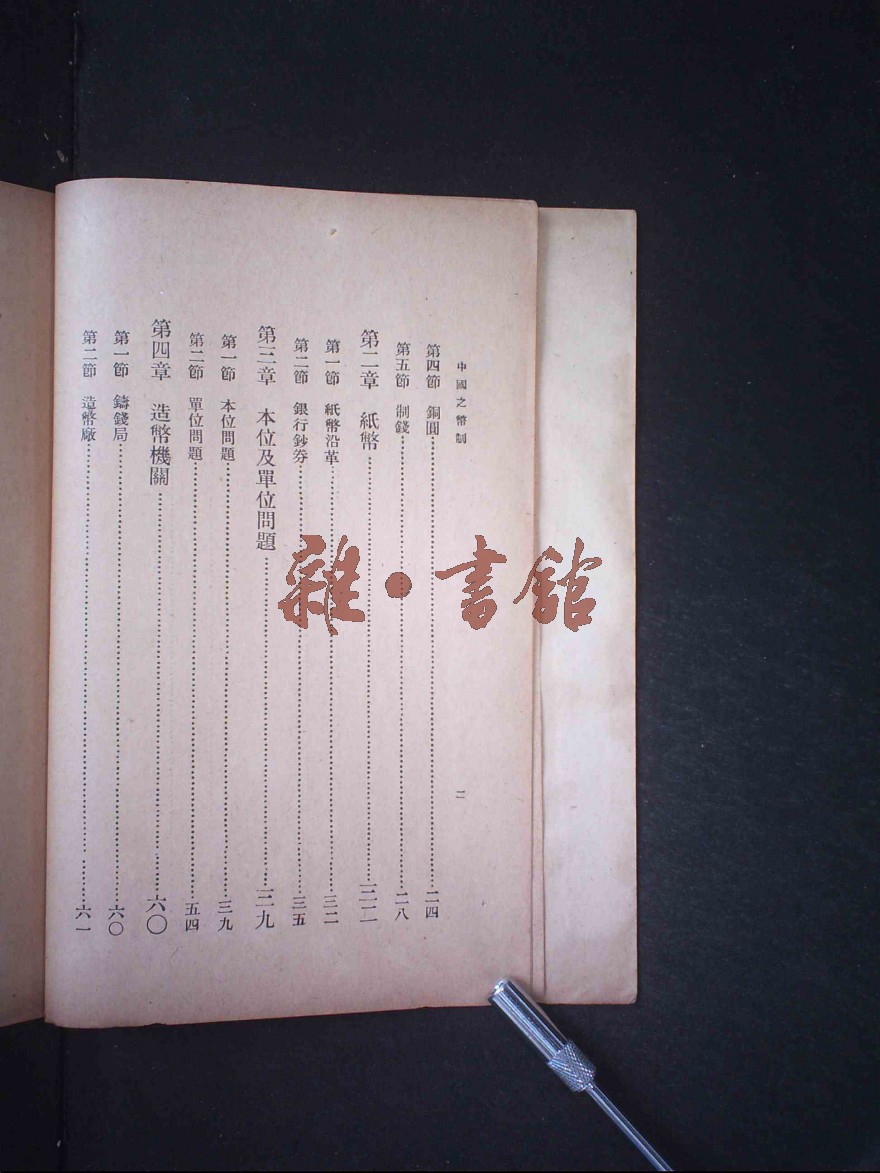 中國之幣制
二
第四節 銅圓………二四
第五節 制錢………二八
第二章 紙幣………三二
第一節 紙幣沿革………三二
第二節 銀行鈔券………三五
第三章 本位及單位問題………三九
第一節 本位問題………三九
第二節 單位問題………五四
第四章 造幣機關………六〇
第一節 鑄錢局………六〇
第二節 造幣廠………六一
雜·書館